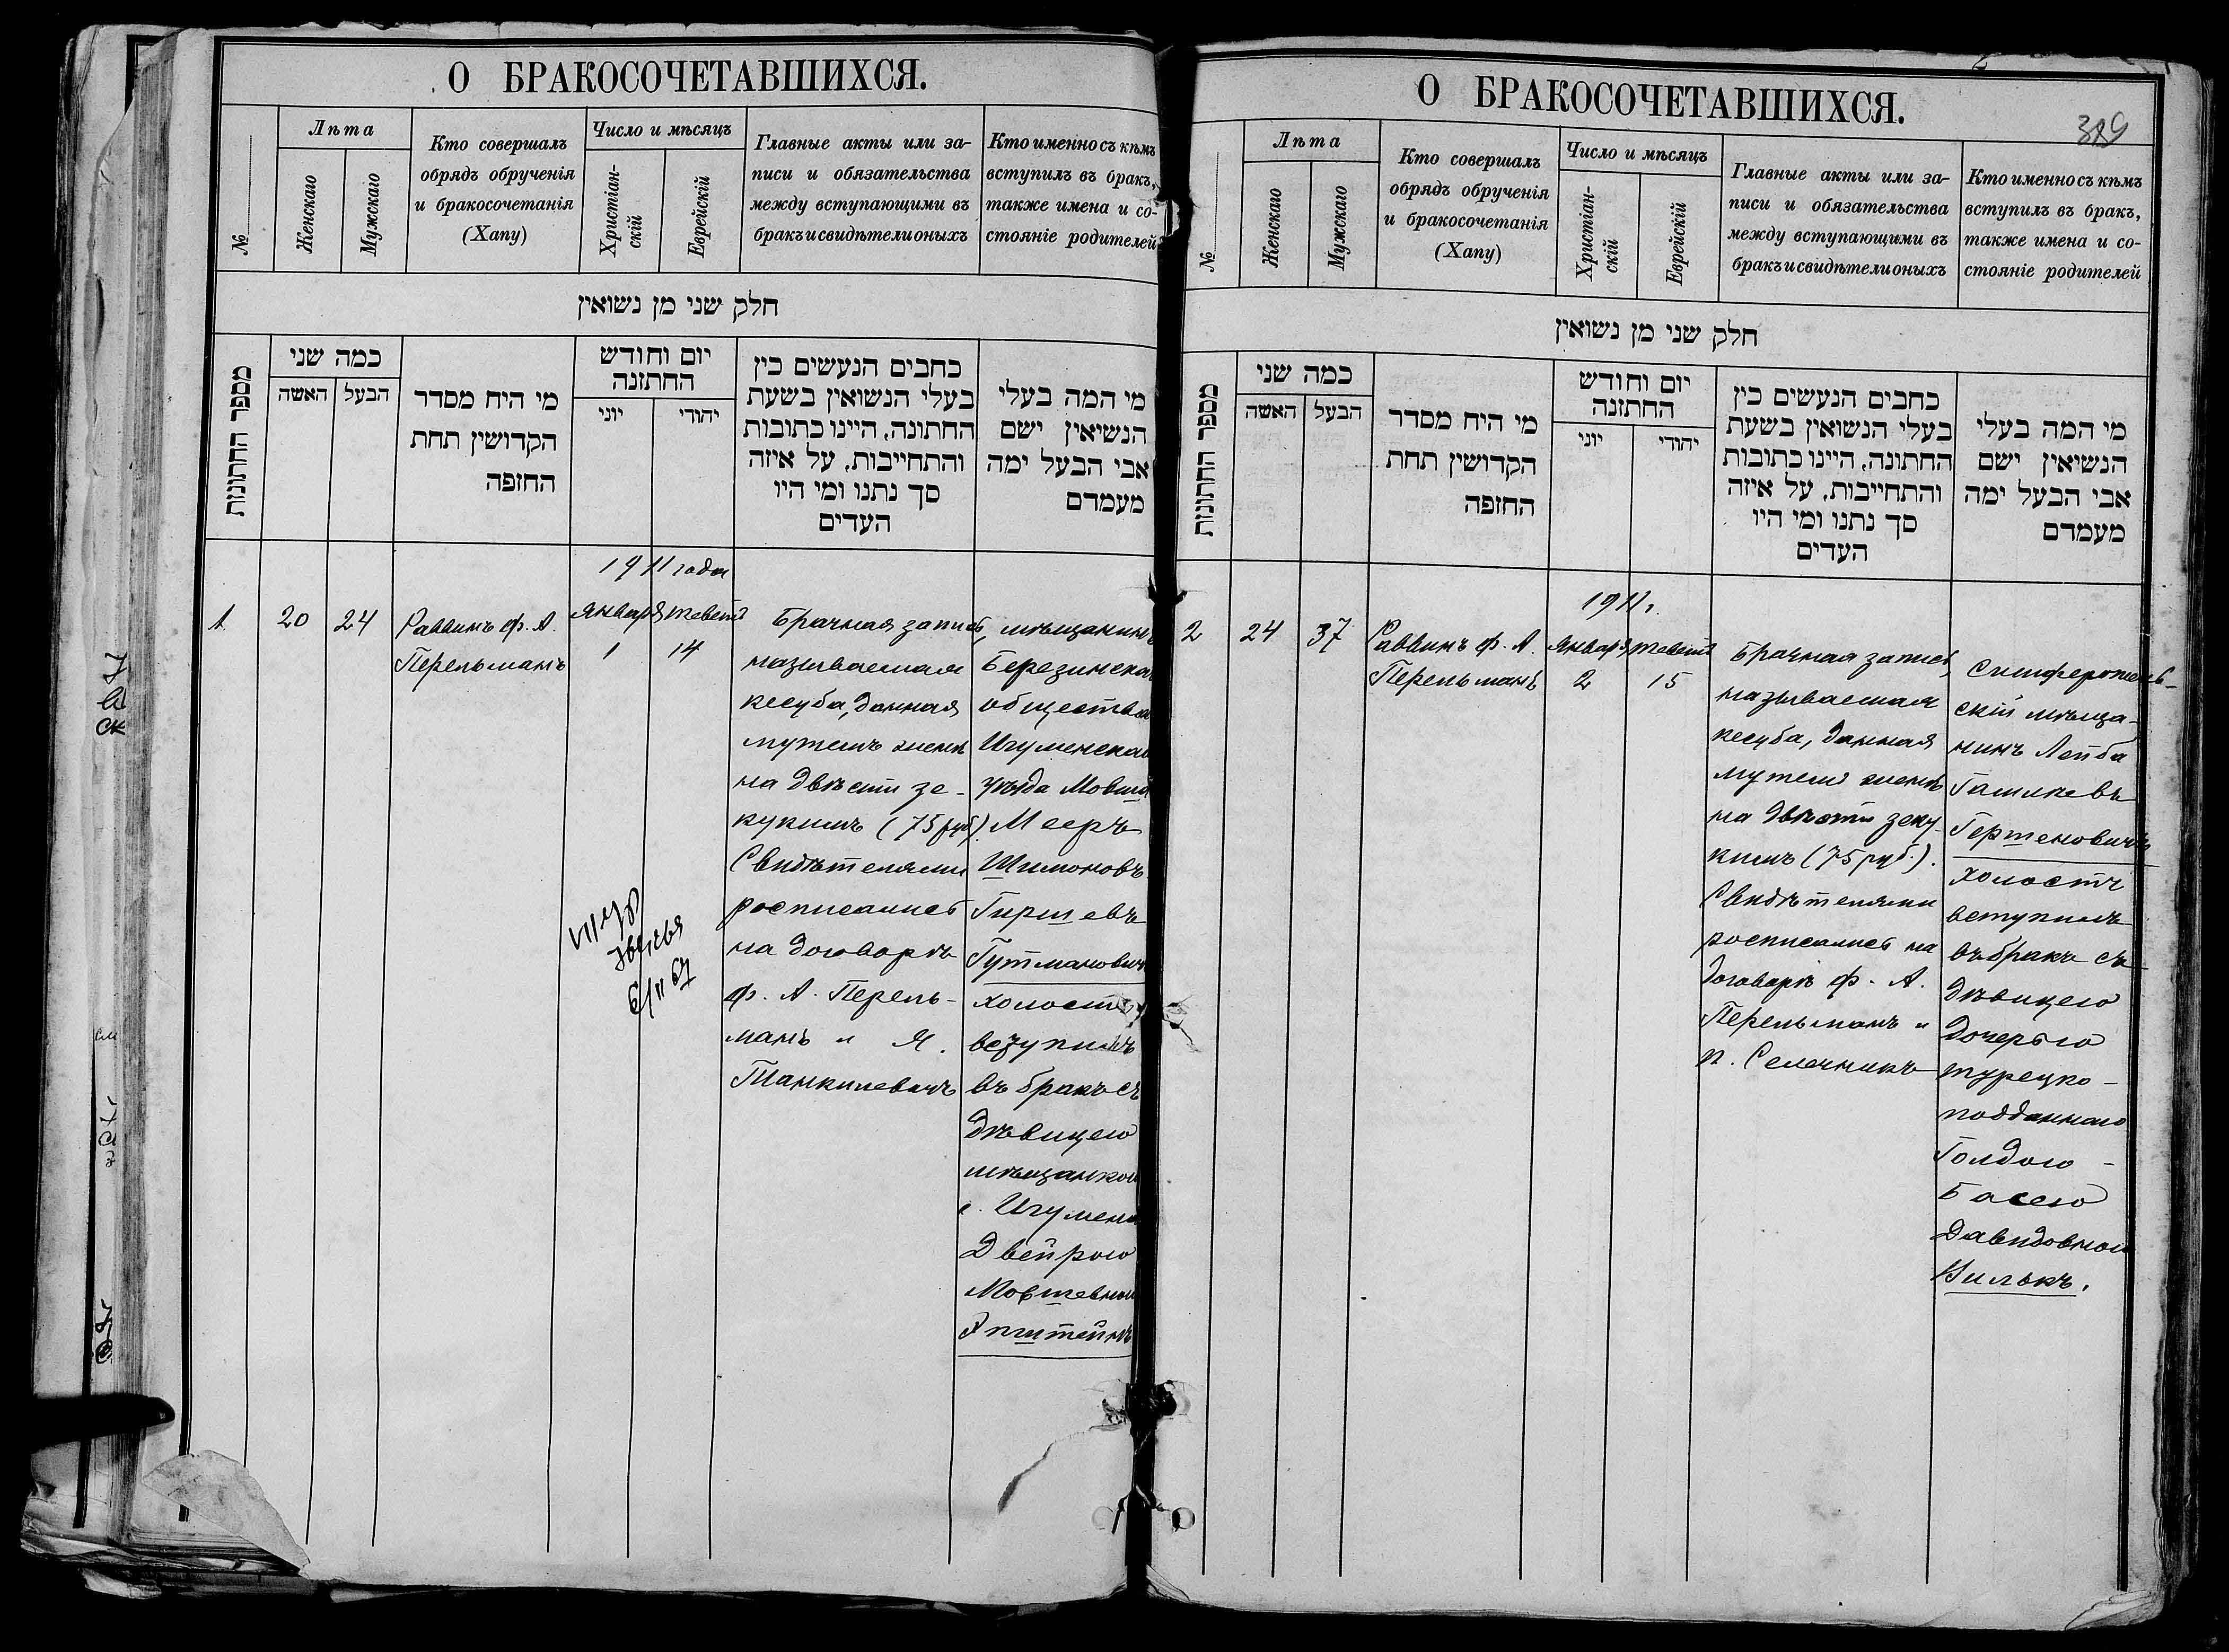 О БРАКОСОЧЕТАВШИХСЯ.
№
Лѣта
Женскаго
Мужскаго
Кто совершалъ
обрядъ обрученія
и бракосочетанія
(Хапу)
Число и мѣсяцъ
Христіан-
скій
Еврейскій
Главные акты или за-
писи и обязательства
между вступающими въ
бракъ и свидѣтели оныхъ
Кто именно съ кѣмъ
вступилъ въ бракъ,
также имена и со-
стояніе родителей
חלק שני מן נשואין
מספר החתונות
כמה שני
האשה
הבעל
מי היח מסדר
הקדושין תחת
החופה
יום וחודש
החתונה
יוני
יהודי
כחבים הנעשים כין
בעלי הנשואין בשעת
החתונה, היינו כתובות
והתחייבות, על איזה
סך נתנו ומי היו
העדים
מי המה בעלי
הנשיאין ישם
אבי הבעל ימה
מעמדם
1911 года
1
20
24
Раввинъ Ф. А.
Перельманъ
Января
1
Теветъ
14
Брачная запись,
называемая
кесуба, данная
мужемъ женѣ
на двѣсти зе-
кукимъ (75 руб).
Свидѣтелями
росписались
на договорѣ
Ф. А. Перель-
манъ и Я.
Танкилевичъ
мѣщанинъ
Березинскаго
общества
Игуменскаго
уѣзда Мовша
Мееръ
Шимоновъ
Гиршевъ
Гутмановичъ
холостъ
вступилъ
въ бракъ съ
дѣвицею
мѣщанкою
г. Игумена
Двейрою
Мовшевною
Эпштейнъ
О БРАКОСОЧЕТАВШИХСЯ.
№
Лѣта
Женскаго
Мужскаго
Кто совершалъ
обрядъ обрученія
и бракосочетанія
(Хапу)
Число и мѣсяцъ
Христіан-
скій
Еврейскій
Главные акты или за-
писи и обязательства
между вступающими въ
бракъ и свидѣтели оныхъ
Кто именно съ кѣмъ
вступилъ въ бракъ,
также имена и со-
стояніе родителей
חלק שני מן נשואין
מספר החתונות
כמה שני
האשה
הבעל
מי היח מסדר
הקדושין תחת
החופה
יום וחודש
החתונה
יוני
יהודי
כחבים הנעשים כין
בעלי הנשואין בשעת
החתונה, היינו כתובות
והתחייבות, על איזה
סך נתנו ומי היו
העדים
מי המה בעלי
הנשיאין ישם
אבי הבעל ימה
מעמדם
1911 г.
2
24
37
Раввинъ Ф. А.
Перельманъ
Января
2
Теветъ
15
Брачная запись,
называемая
кесуба, данная
мужемъ женѣ
на двѣсти зеку-
кимъ (75 руб.).
Свидѣтелями
росписались на
договорѣ Ф. А.
Перельманъ и
П. Селечникъ
Симферополь-
скій мѣща-
нинъ Лейба
Гершеновичъ
холостъ
вступилъ
въ бракъ съ
дѣвицею
дочерью
турецко-
подданнаго
Голдою-
Басею
Давидовною
Вилькъ.